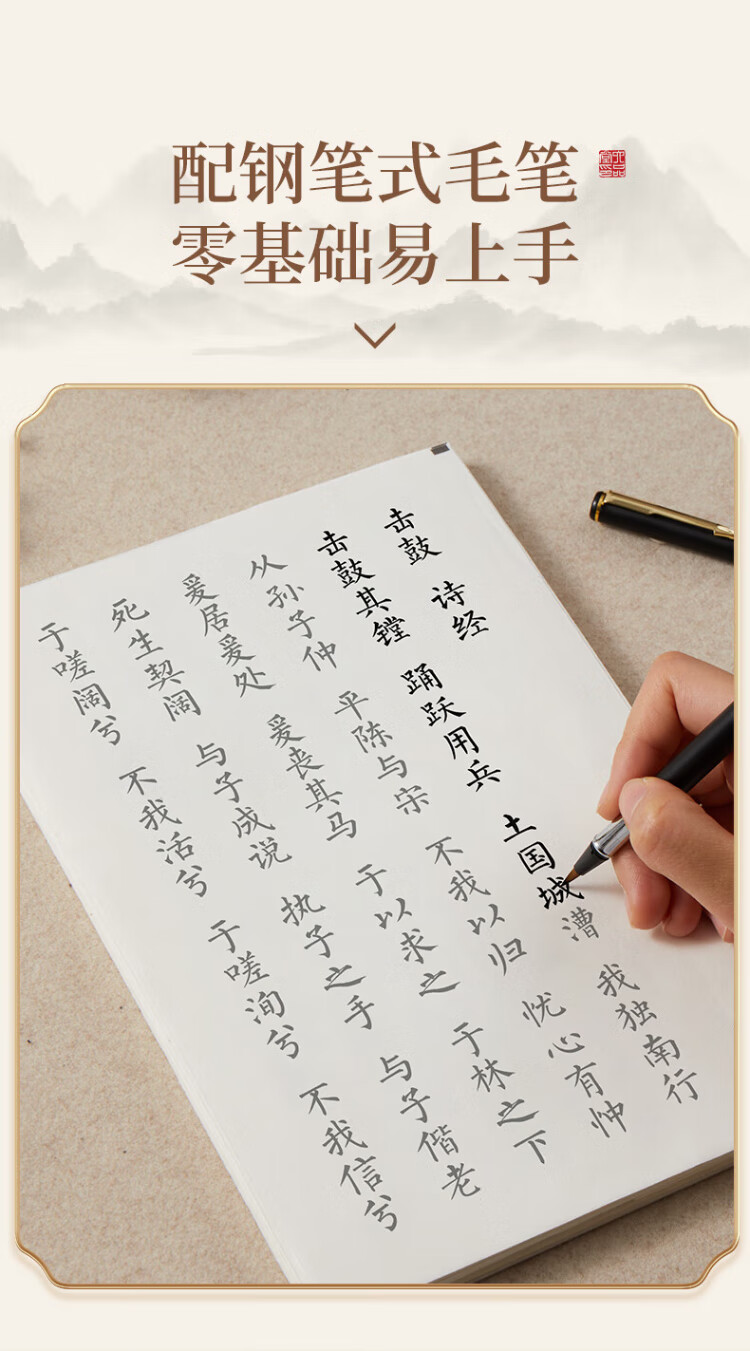 配钢笔式毛笔
零基础易上手
击鼓 诗经
击鼓其镗 踊跃用兵 土国城漕 我独南行
从孙子仲 平陈与宋 不我以归 忧心有忡
爰居爰处 爰丧其马 于以求之 于林之下
死生契阔 与子成说 执子之手 与子偕老
于嗟阔兮 不我活兮 于嗟洵兮 不我信兮